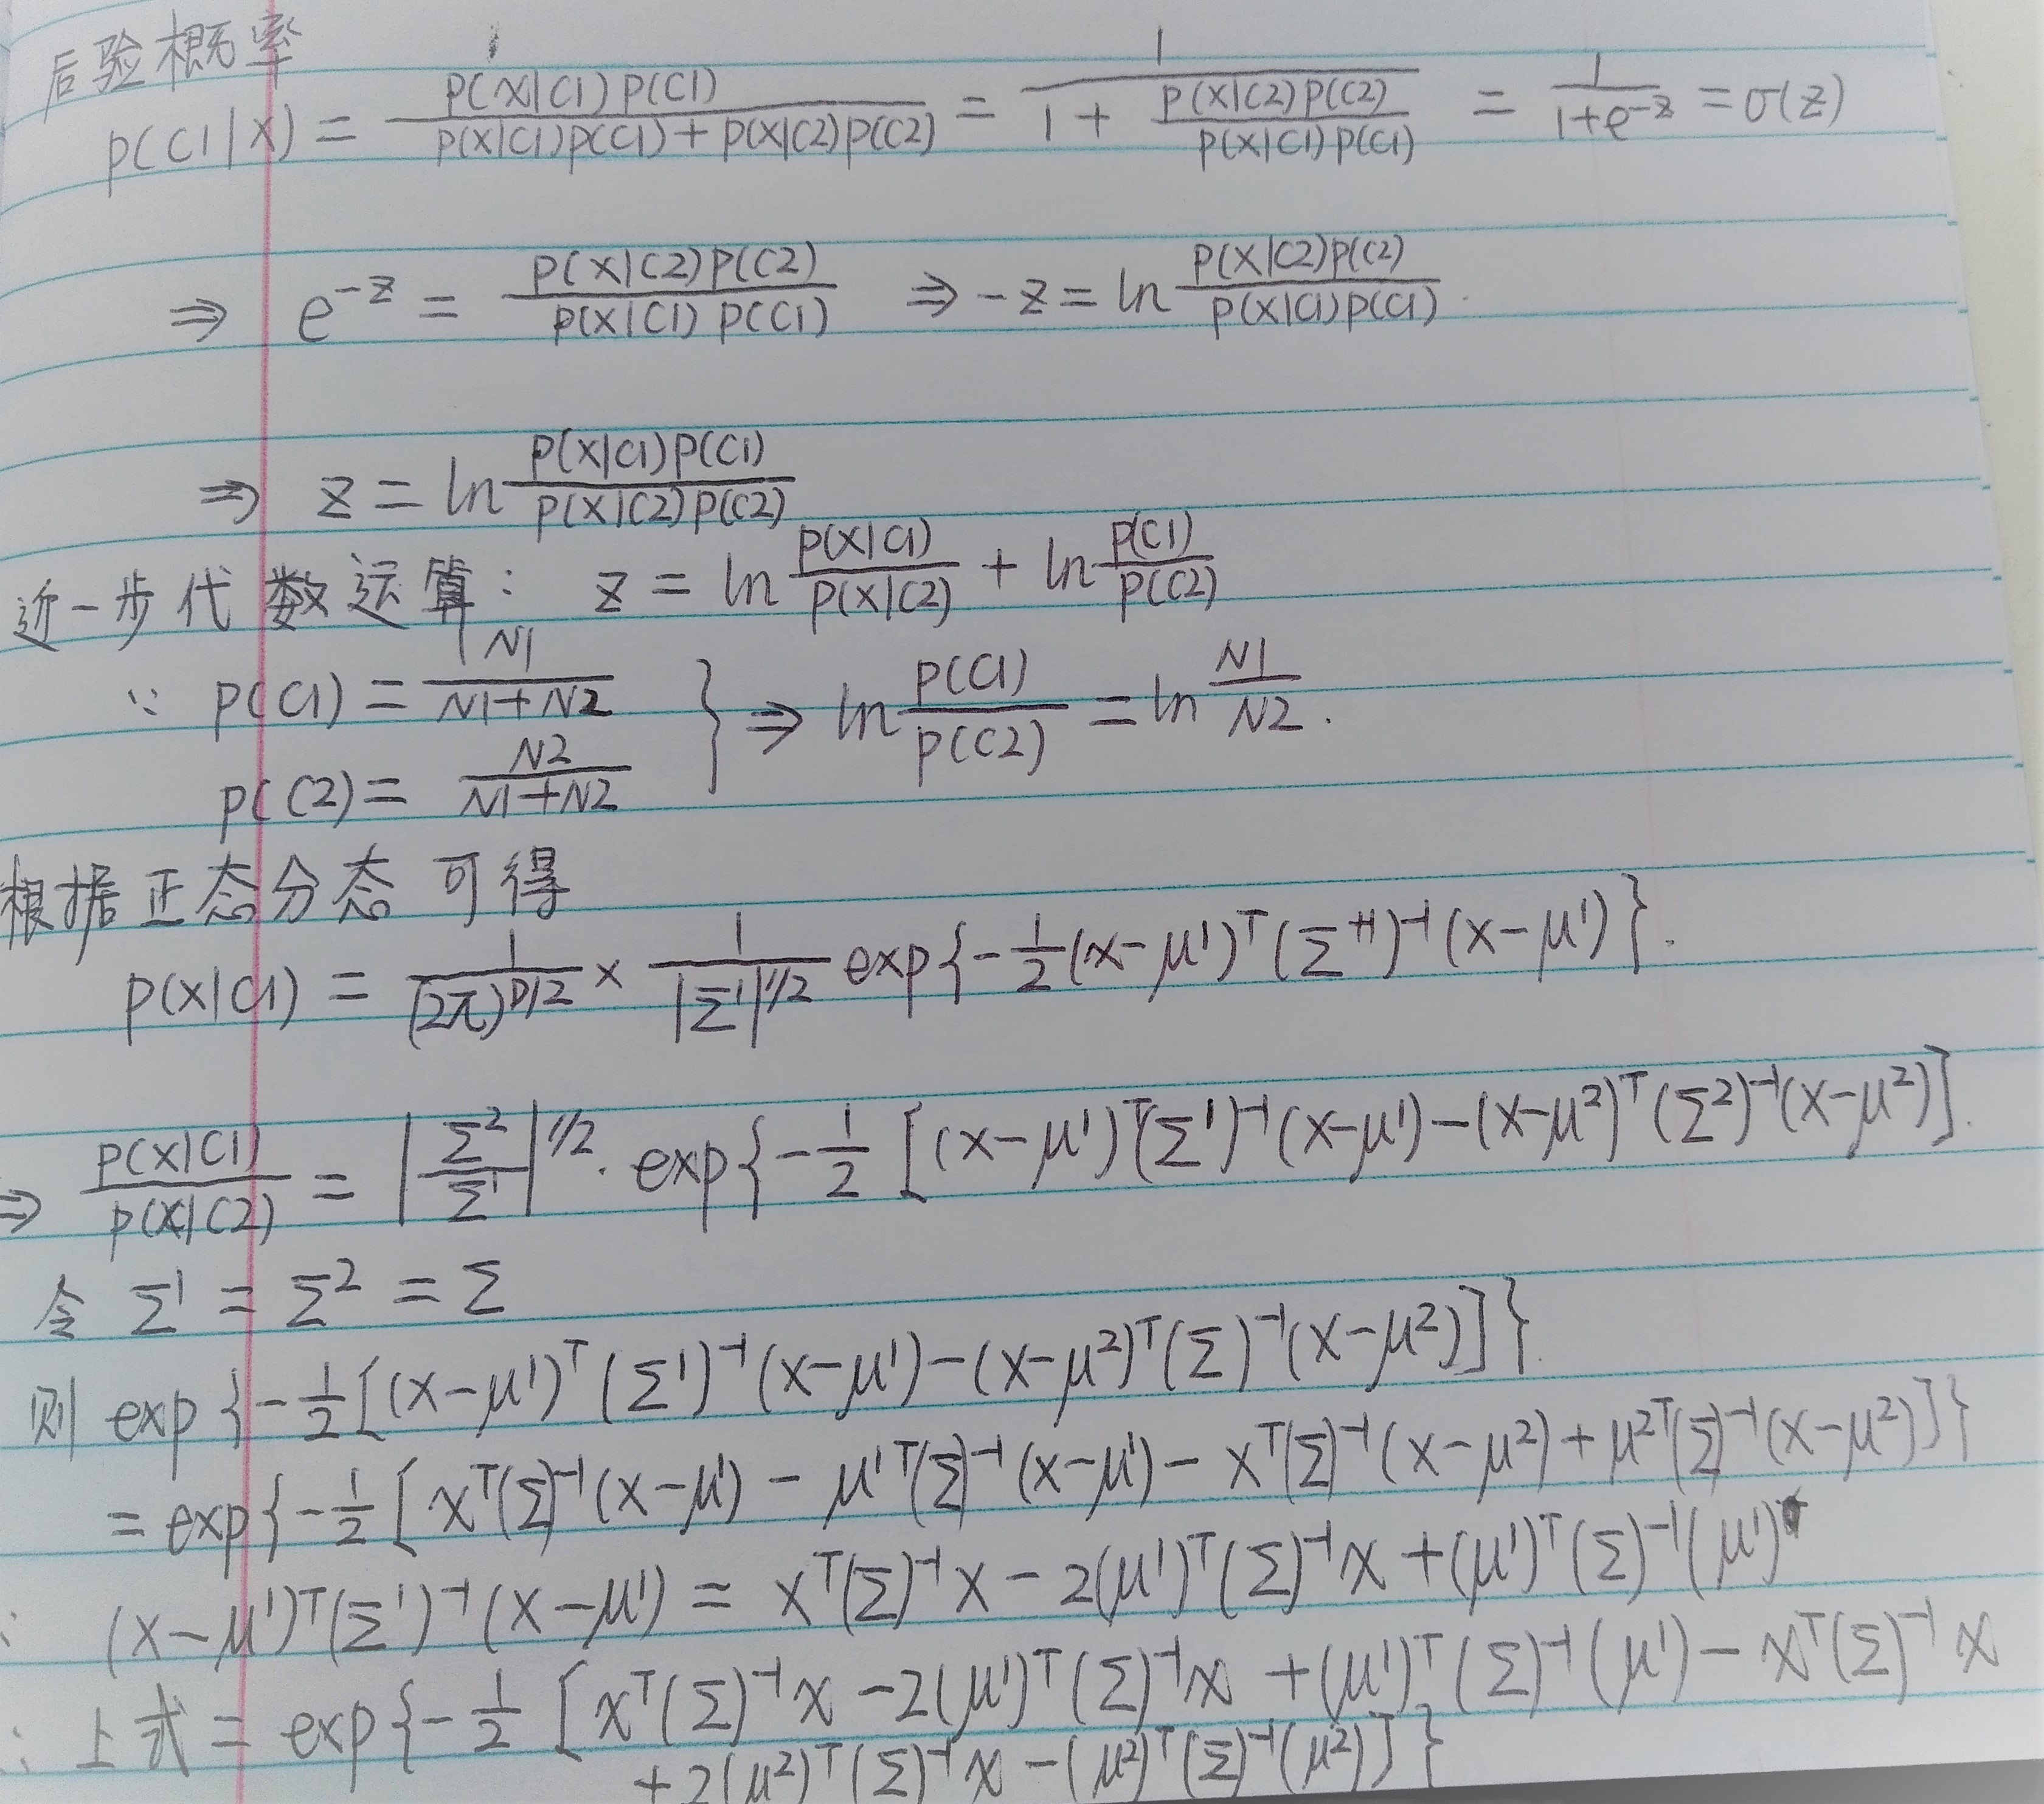 后验概率
P(C1|X) = P(X|C1)P(C1) / (P(X|C1)P(C1) + P(X|C2)P(C2)) = 1 / (1 + P(X|C2)P(C2) / P(X|C1)P(C1)) = 1 / (1+e^{-z}) = σ(z)
⇒ e^{-z} = P(X|C2)P(C2) / P(X|C1)P(C1) ⇒ -z = ln P(X|C2)P(C2) / P(X|C1)P(C1).
⇒ z = ln P(X|C1)P(C1) / P(X|C2)P(C2)
近一步代数运算: z = ln P(X|C1) / P(X|C2) + ln P(C1) / P(C2)
∵ P(C1) = N1 / (N1+N2) } ⇒ ln P(C1) / P(C2) = ln N1 / N2.
P(C2) = N2 / (N1+N2)
根据正态分态 可得
P(X|C1) = 1 / (2π)^{D/2} × 1 / |Σ¹|^{1/2} exp{-1/2 (x-μ¹)^T (Σ¹)^{-1} (x-μ¹)}.
⇒ P(X|C1) / P(X|C2) = |Σ² / Σ¹|^{1/2} · exp{-1/2 [(x-μ¹)^T (Σ¹)^{-1} (x-μ¹) - (x-μ²)^T (Σ²)^{-1} (x-μ²)].
令 Σ¹ = Σ² = Σ
则 exp{-1/2 [(x-μ¹)^T (Σ¹)^{-1} (x-μ¹) - (x-μ²)^T (Σ)^{-1} (x-μ²)]}.
= exp{-1/2 [x^T (Σ)^{-1} (x-μ¹) - μ¹^T (Σ)^{-1} (x-μ¹) - x^T (Σ)^{-1} (x-μ²) + μ²^T (Σ)^{-1} (x-μ²)]}
∵ (x-μ¹)^T (Σ¹)^{-1} (x-μ¹) = x^T (Σ)^{-1} x - 2(μ¹)^T (Σ)^{-1} x + (μ¹)^T (Σ)^{-1} (μ¹)
∴ 上式 = exp{-1/2 [x^T (Σ)^{-1} x - 2(μ¹)^T (Σ)^{-1} x + (μ¹)^T (Σ)^{-1} (μ¹) - x^T (Σ)^{-1} x
+ 2(μ²)^T (Σ)^{-1} x - (μ²)^T (Σ)^{-1} (μ²)]}